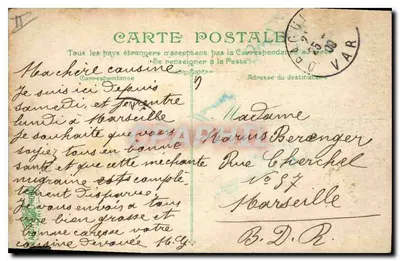 II
CARTE POSTALE
Tous les pays étrangers n'acceptent pas la Correspondance au recto
(Se renseigner à la Poste)
Correspondance
Adresse du destinataire
DRAGUI
VAR
Ma chère cousine
Je suis ici depuis
samedi, et je rentre
lundi à Marseille
je souhaite que vous
soyez tous en bonne
santé et que cette mechante
migraine est complè
tement disparue.
Je vous envoie à tous
une bien grosse et
bonne caresse votre
cousine dévouée
Madame
Marius Berenger
Rue Cherchel
No 37
Marseille
B. D. R.